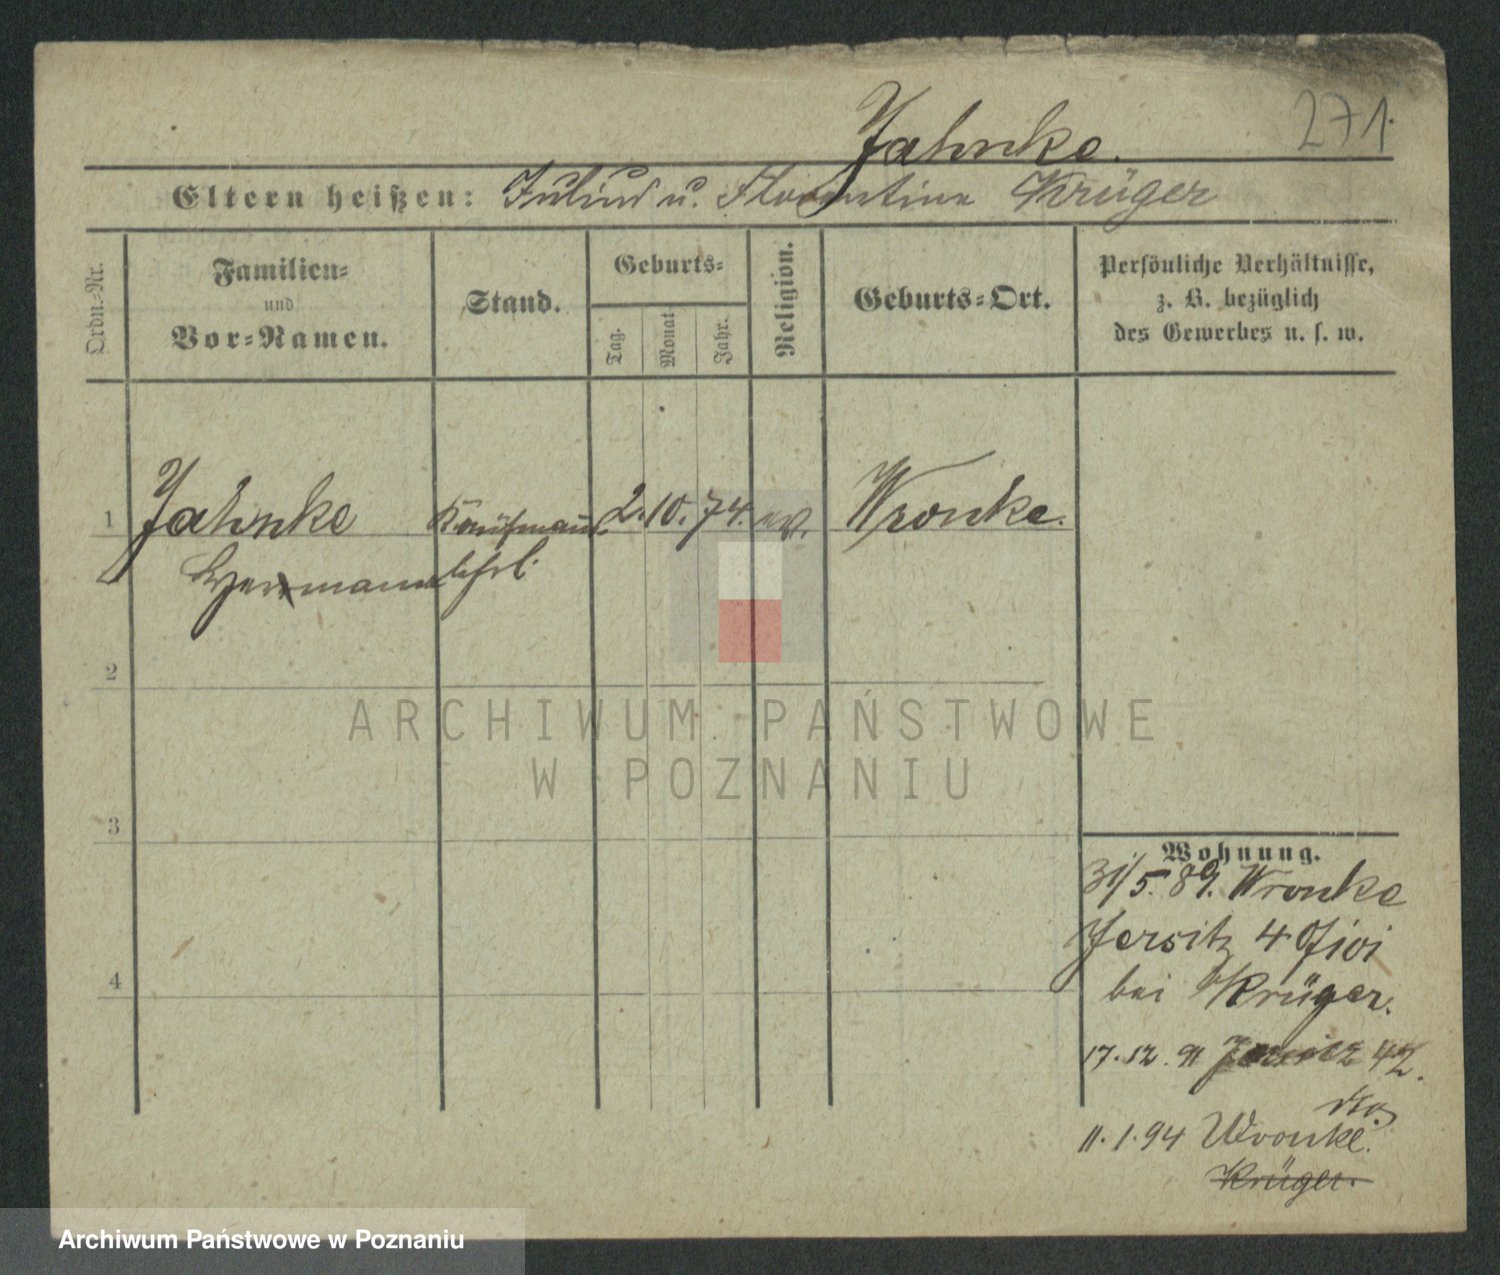 271.
Jahnke.
Eltern heißen: Julius u. Florentine Krüger
Ordn.-Nr.
Familien-
und
Vor-Namen.
Stand.
Geburts-
Tag.
Monat
Jahr.
Religion.
Geburts-Ort.
Persönliche Verhältnisse,
z. B. bezüglich
des Gewerbes u. s. w.
1 Jahnke Kaufmanns 2. 10. 74. ev. Wronke.
Hermann lehrl.
2
3
4
Wohnung.
31/5. 89. Wronke
Jersitz 4
bei Krüger.
17. 12. 91 Jersitz 42.
11. 1. 94 Wronke.
Krüger.
ARCHIWUM PAŃSTWOWE
W POZNANIU
Archiwum Państwowe w Poznaniu